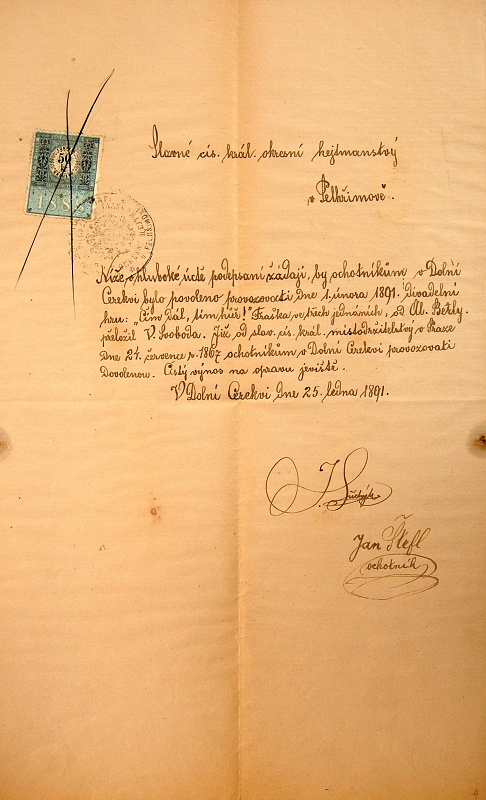 50
188
Slavné cís. král. okresní hejtmanství
v Pelhřimově.
Níže v hluboké úctě podepsaní žádají, by ochotníkům v Dolní
Cerekvi bylo povoleno provozovati dne 1. února 1891. divadelní
hru: „Čím dál, tím hůř!" Fraška ve třech jednáních, od Al. Berly.
přeložil V. Svoboda. Již od slav. cís. král. místodržitelstvy v Praze
dne 24. července r. 1867 ochotníkům v Dolní Cerekvi provozovati
dovolenou. Čistý výnos na opravu jeviště.
V Dolní Cerekvi dne 25. ledna 1891.
J.
Jan Štefl
ochotník